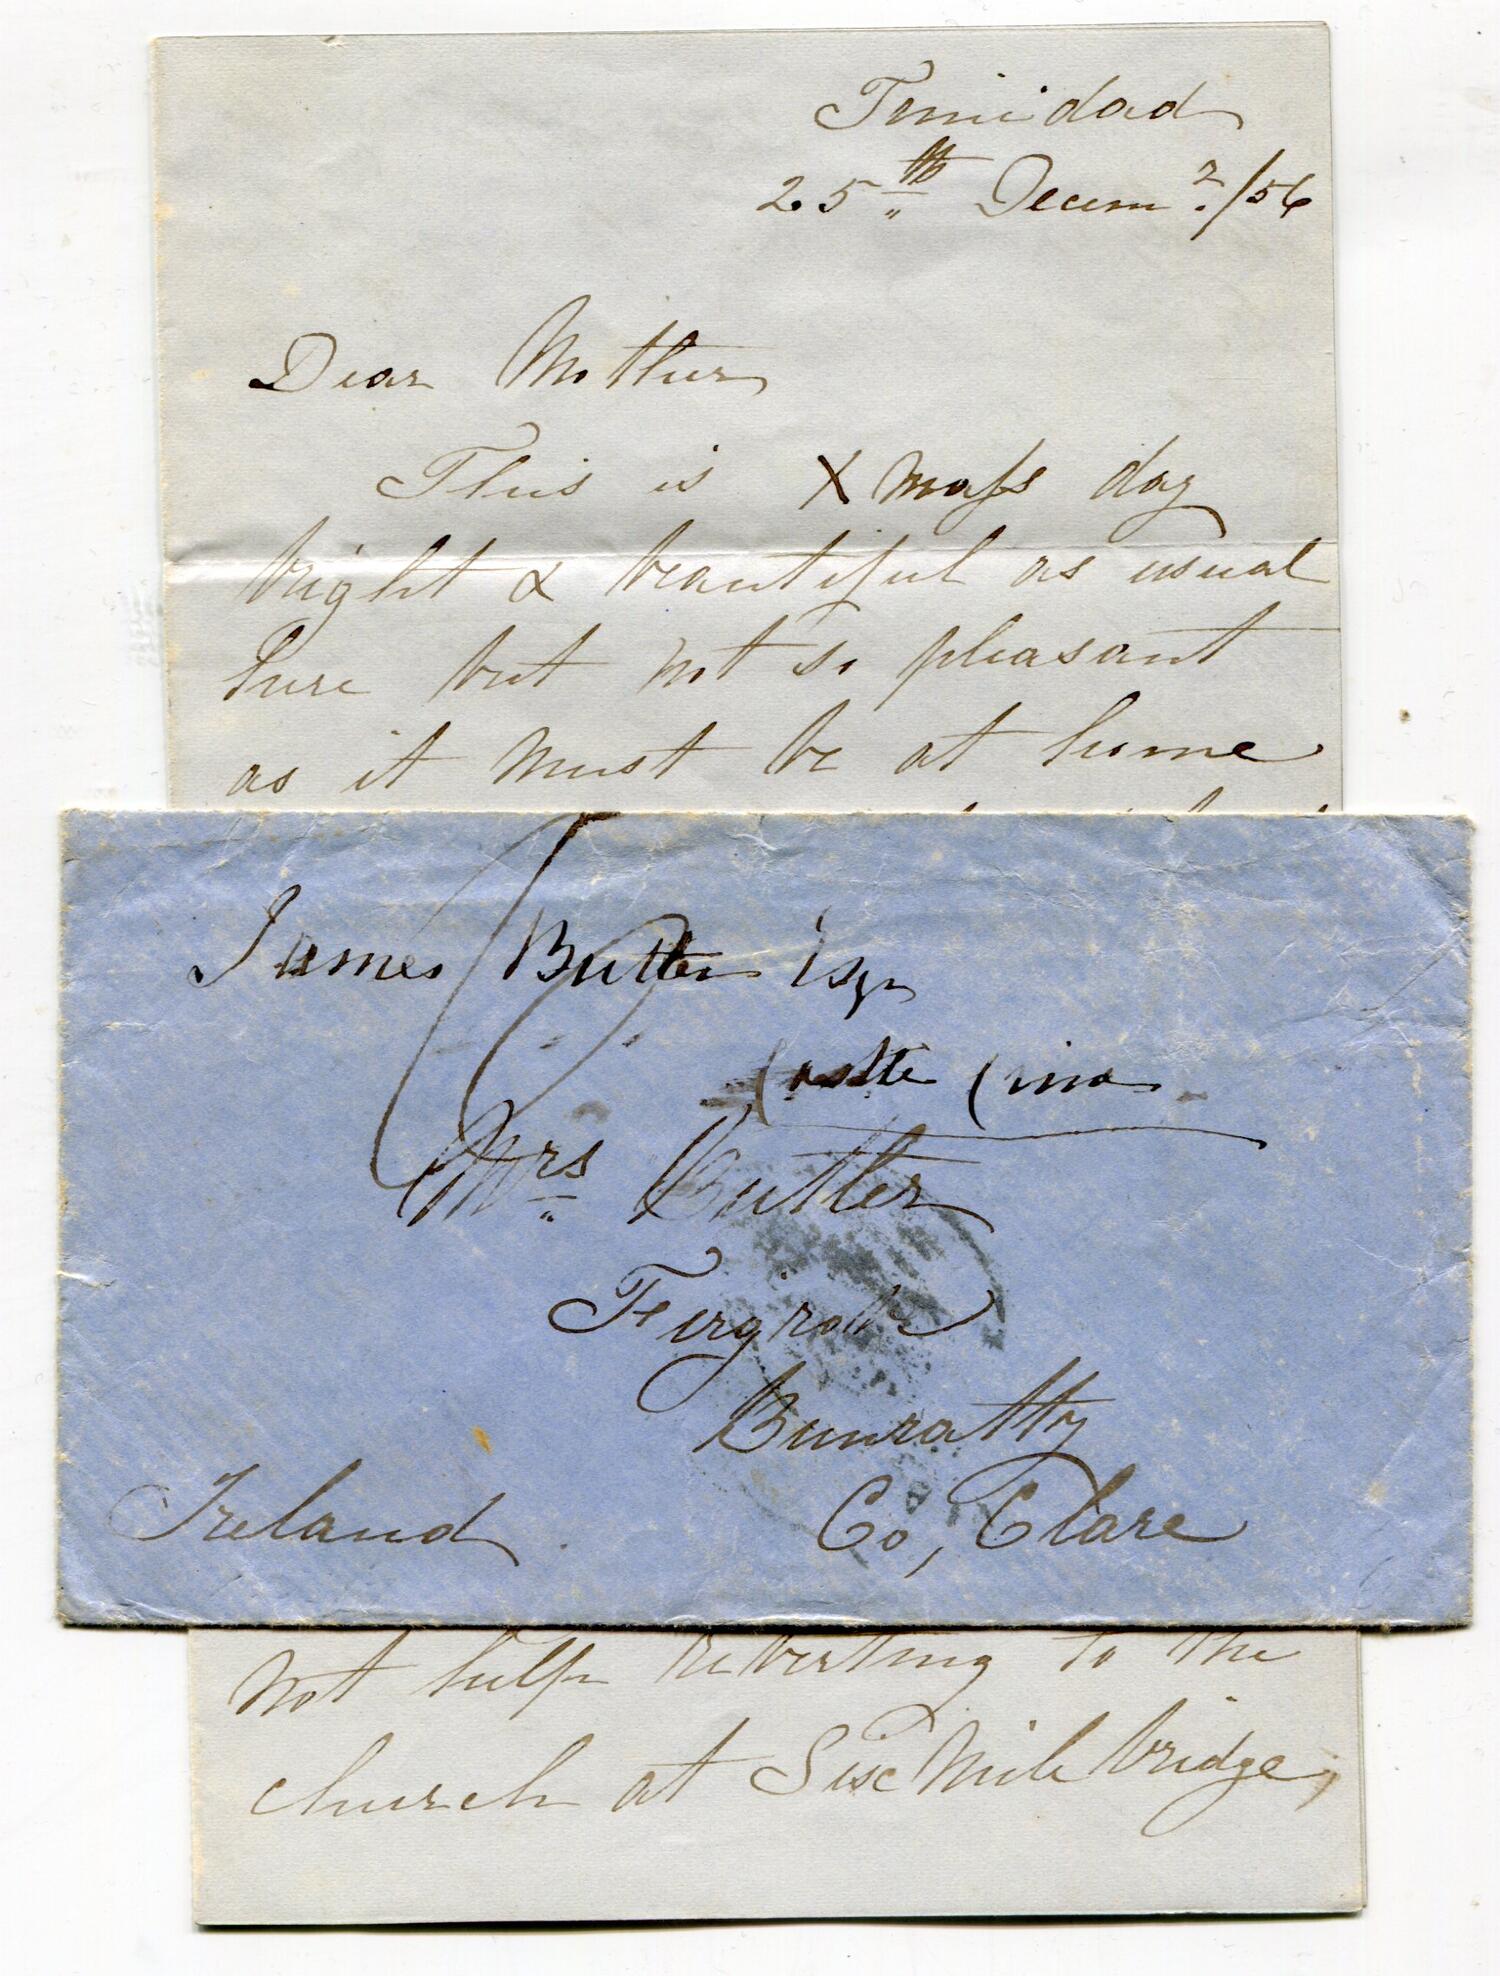 Trinidad
25th Decemr./56
Dear Mother
This is Xmass day
bright & beautiful as usual
here but not so pleasant
as it must be at home
6
James Butler Esqr
Castle Crine
Mrs Butler
Firgrove
Bunratty
Co, Clare
Ireland
not help reverting to the
church at Six Mile bridge,